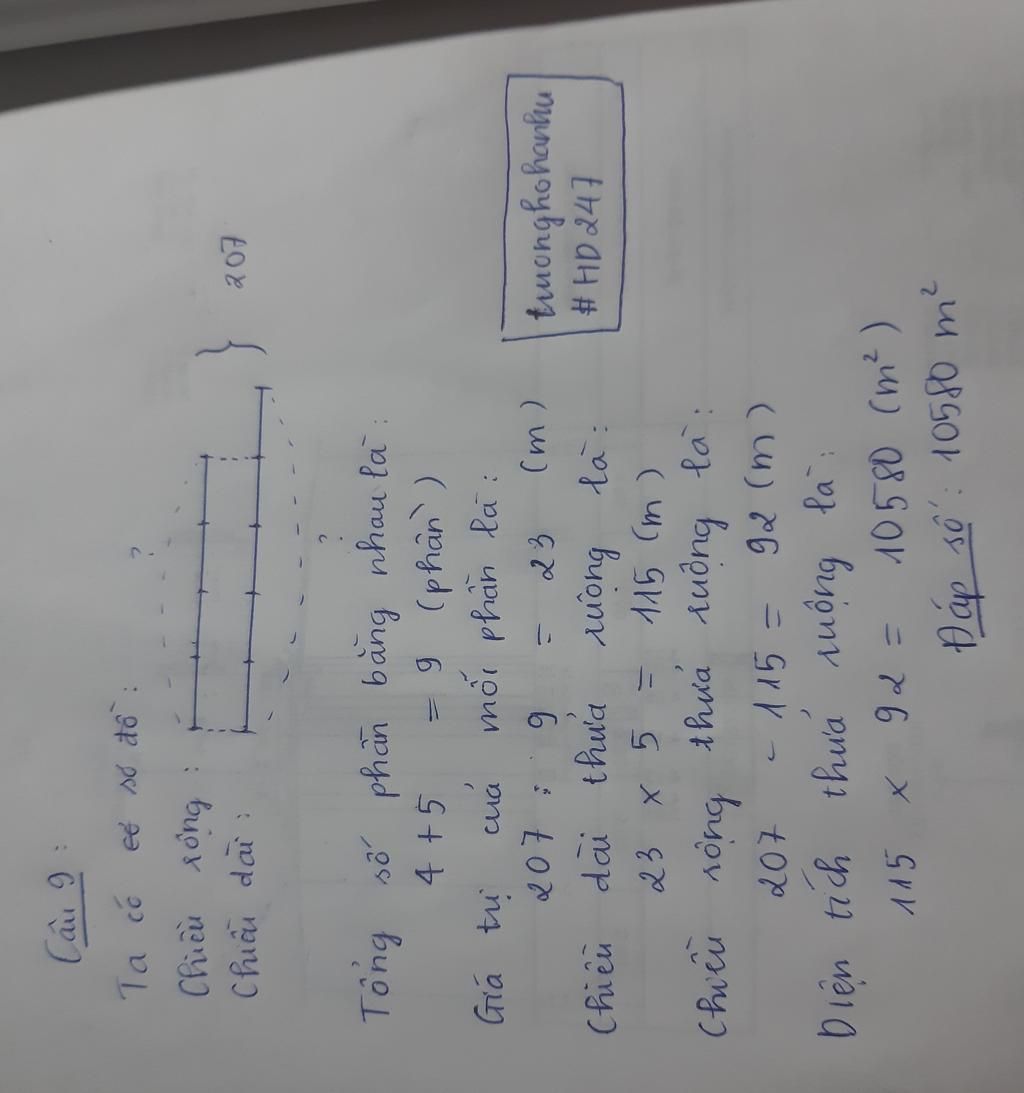 Câu 9:
Ta có sơ đồ:
?
Chiều rộng:
Chiều dài:
207
?
Tổng số phần bằng nhau là:
4 + 5 = 9 (phần)
Giá trị của mỗi phần là:
207 : 9 = 23 (m)
Chiều dài thửa ruộng là:
23 x 5 = 115 (m)
Chiều rộng thửa ruộng là:
207 - 115 = 92 (m)
Diện tích thửa ruộng là:
115 x 92 = 10580 (m²)
Đáp số: 10580 m²
truonghohanhu
#HD247